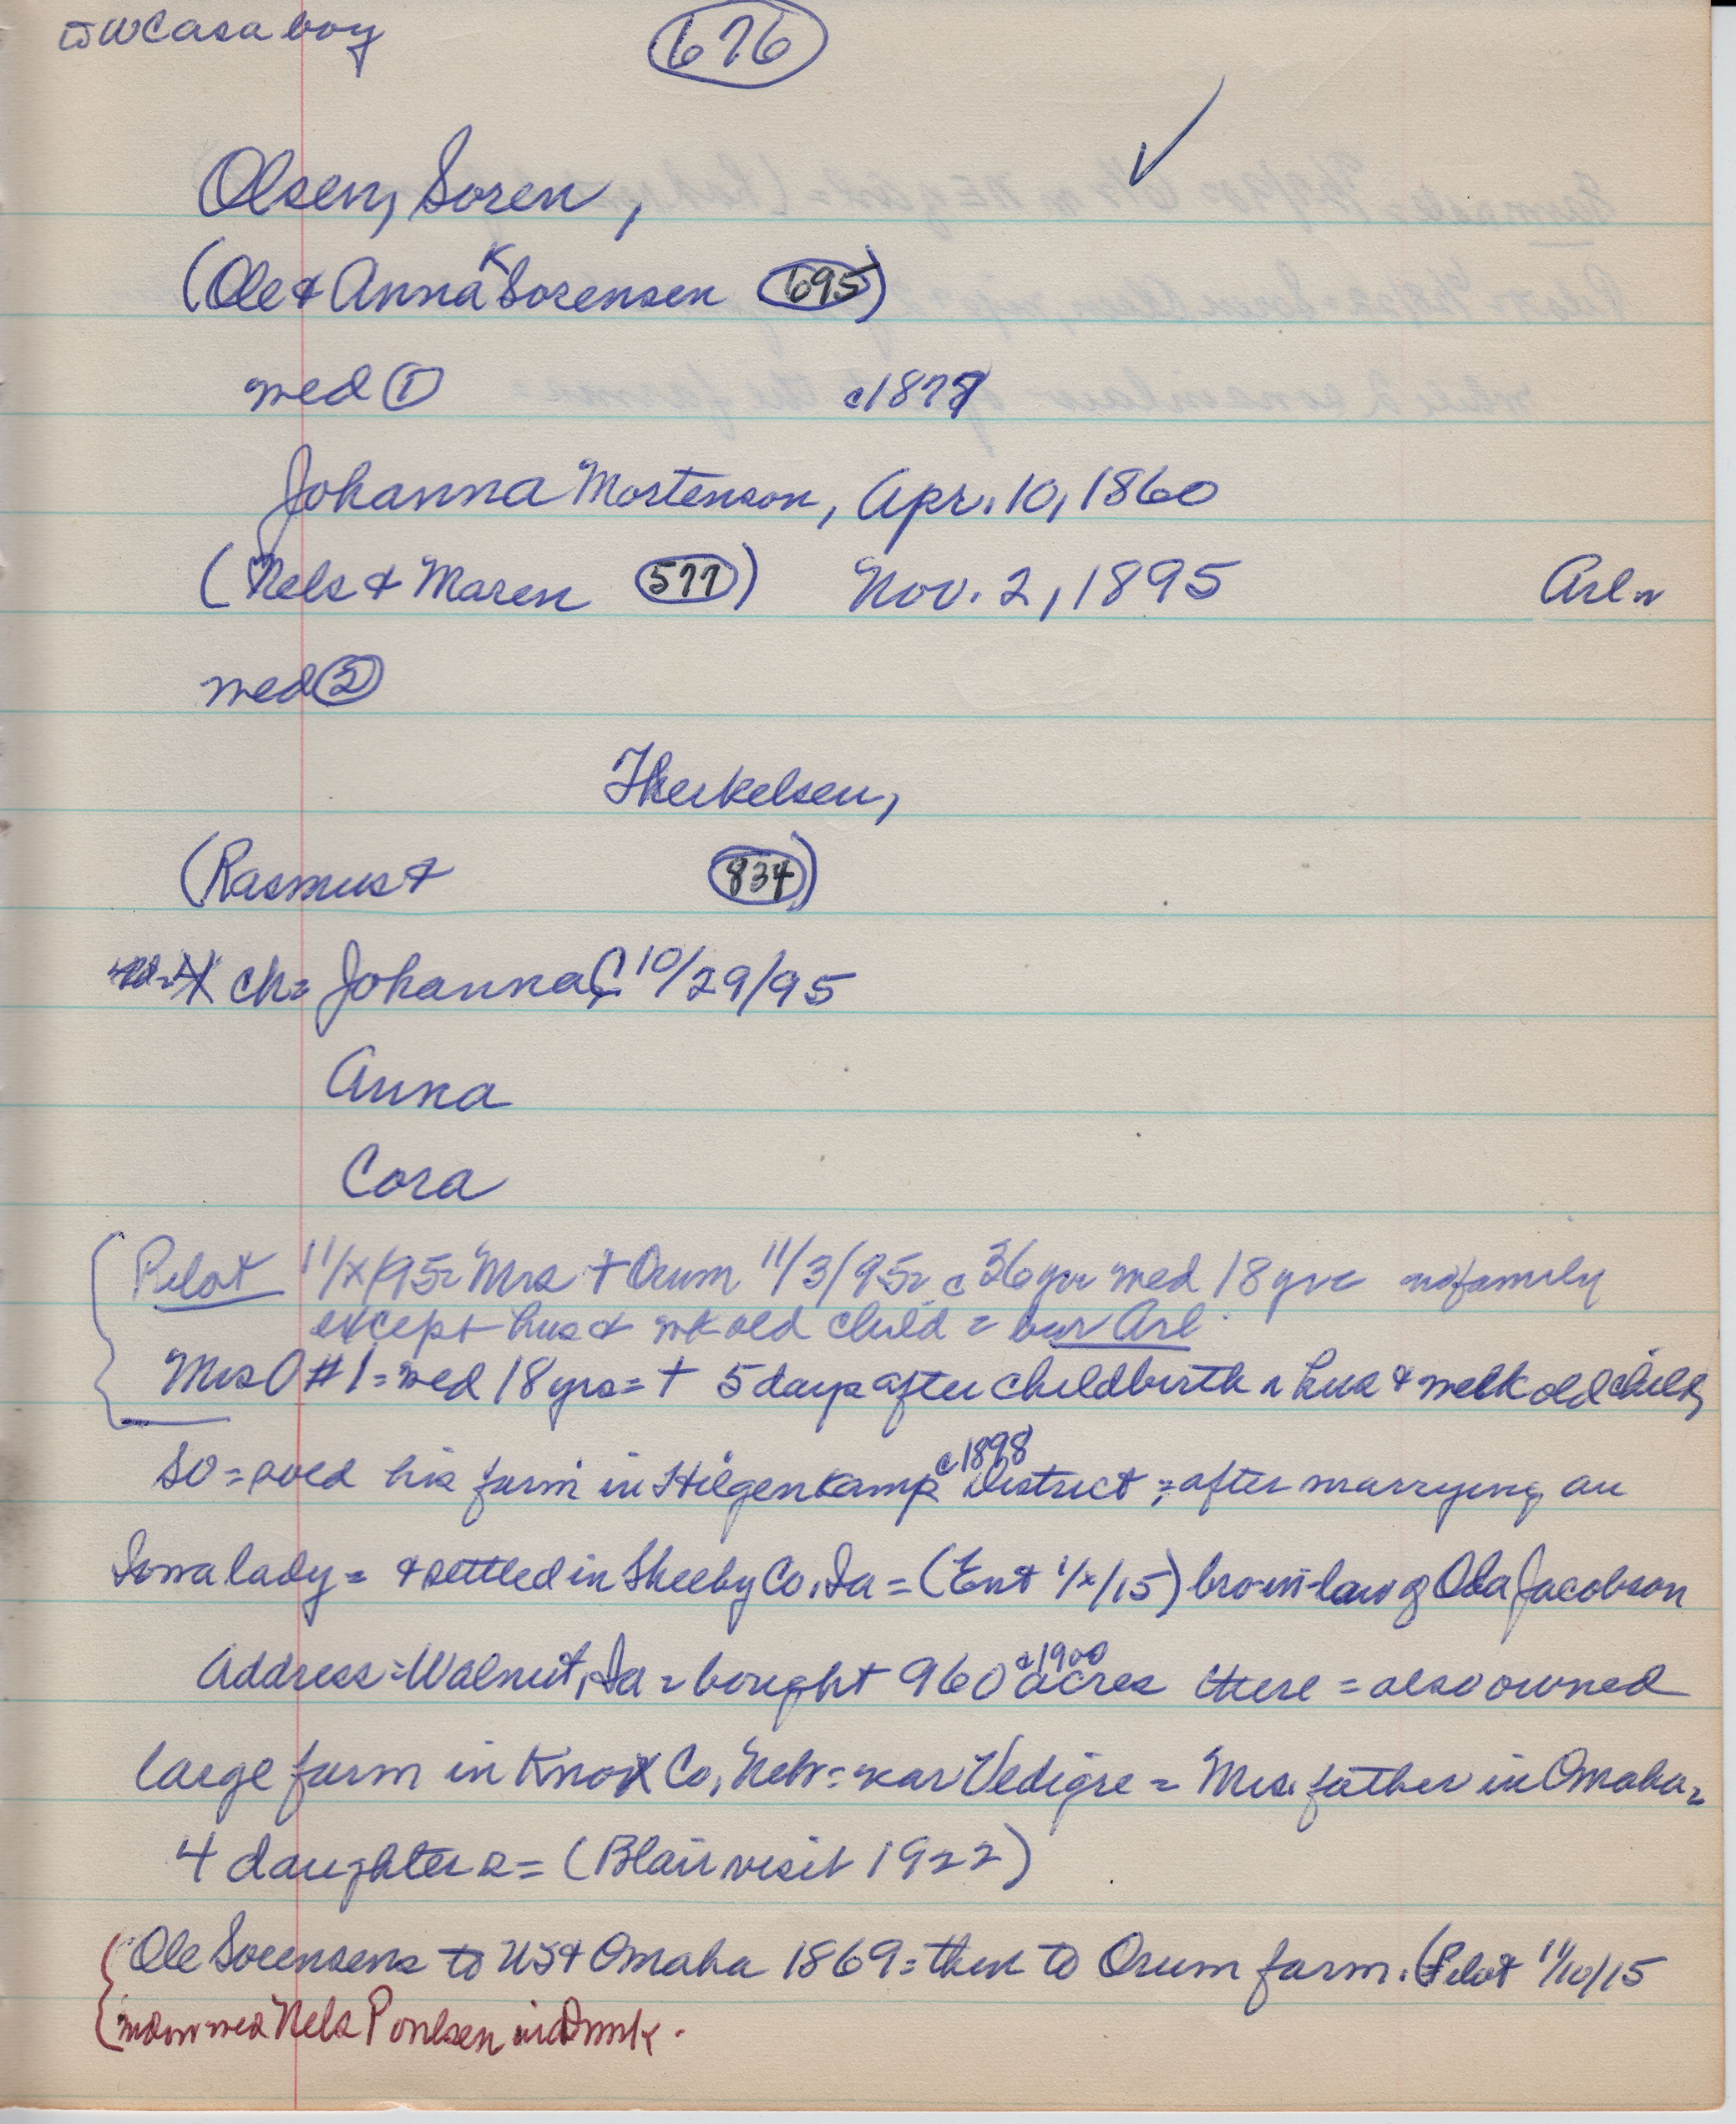 WCasaboy
676
Olsen, Soren,
(Ole & Anna K Sorensen 695)
med ① c1878
Johanna Mortenson, Apr. 10, 1860
(Nels & Maren 577) Nov. 2, 1895 Arl
med ②
Therkelsen,
(Rasmus & 834)
ch= Johanna C 10/29/95
Anna
Cora
Pilot 11/x/95= Mrs + Orum 11/3/95= c 36 yrs med 18 yrs no family
except hus & wk old child = bur Arl.
Mrs O #1 = med 18 yrs = + 5 days after childbirth = hus & welk old child
SO = sold his farm in Hilgenkamp District c1898 = after marrying an
Iowa lady = & settled in Sheeby Co, Ia = (Ent 1/x/15) bro-in-law of Ola Jacobson
Address = Walnut, Ia = bought 960 acres c1900 there = also owned
large farm in Knox Co, Neb = near Vedigre = Mrs. father in Omaha =
4 daughters = (Blair visit 1922)
Ole Sorensens to US & Omaha 1869 = then to Orum farm. (Pilot 11/10/15
med Nels Poulsen in Dnmk.